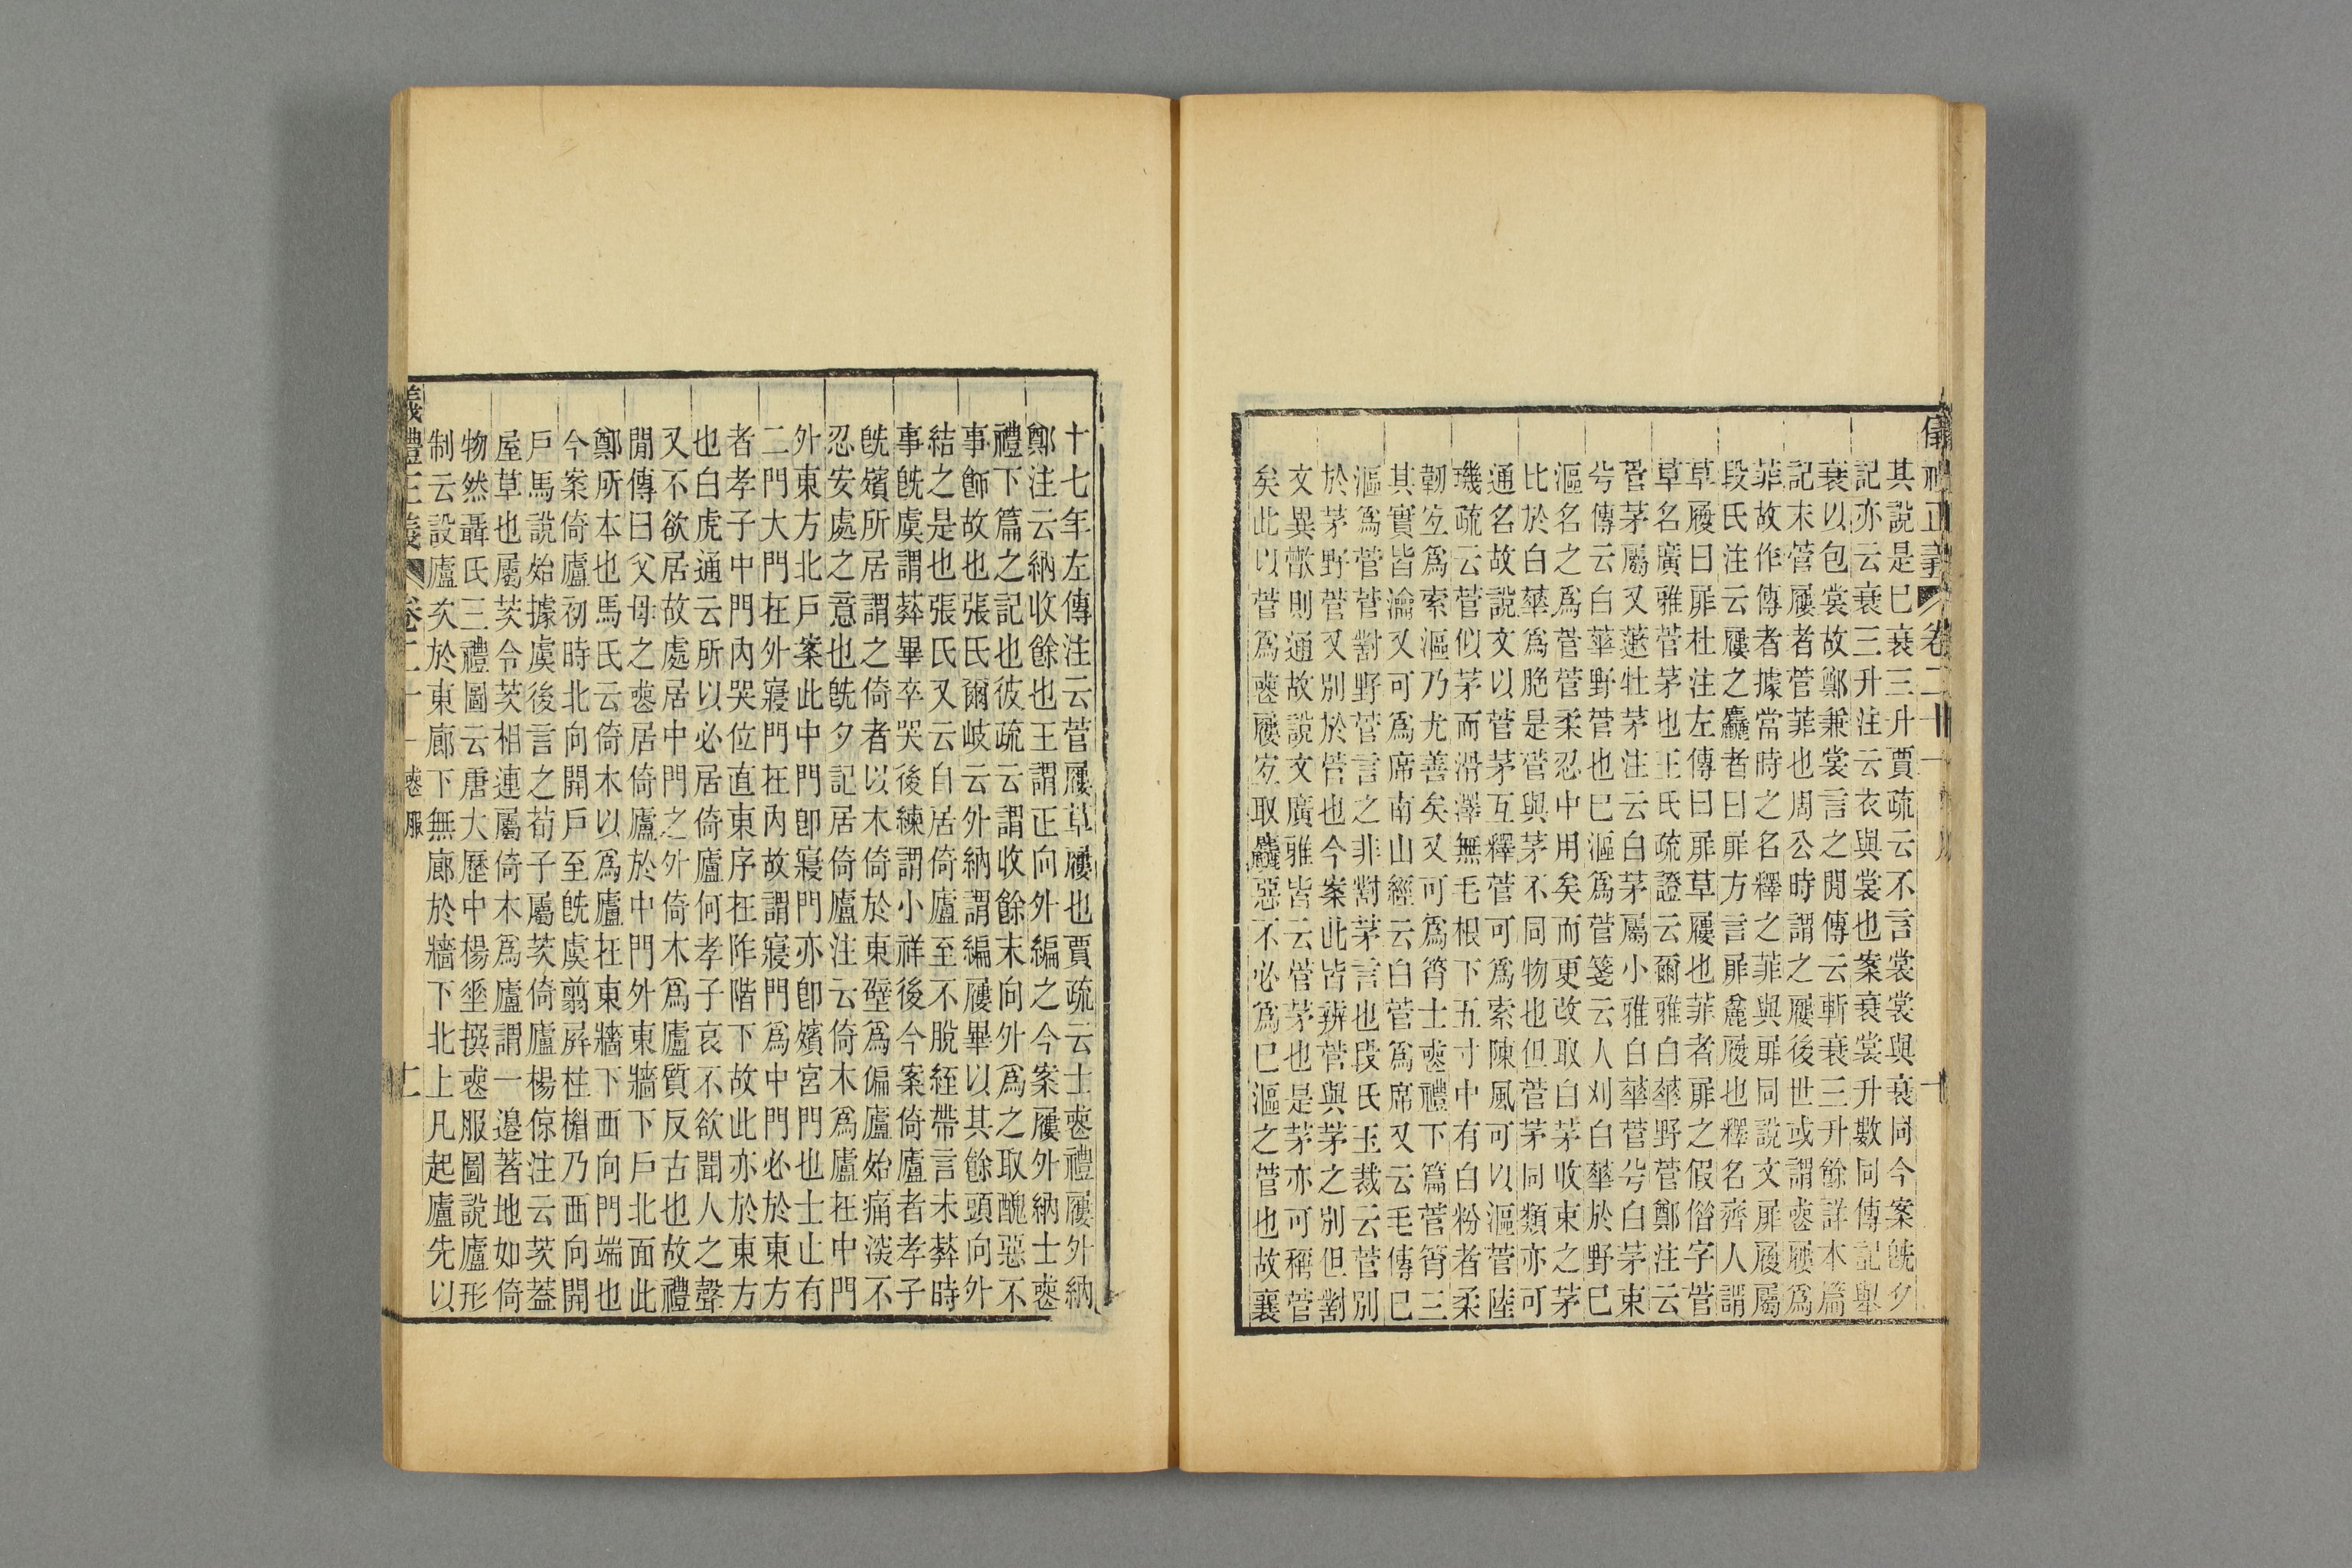 儀禮正義 卷二十一 十
其說是巳衰三升賈疏云不言裳裳與衰同今案旣夕
記亦云衰三升注云衣與裳也案衰裳升數同傳記舉
衰以包裳故鄭兼裳言之閒傳云斬衰三升餘詳本篇
記末菅屨者菅菲也周公時謂之屨後世或謂喪屨爲
菲故作傳者據當時之名釋之菲與屝同說文屝履屬
段氏注云屨之麤者曰屝方言屝麤履也釋名齊人謂
草履曰屝杜注左傳曰屝草屨也菲者屝之假借字菅
草名廣雅菅茅也王氏疏證云爾雅白華野菅鄭注云
菅茅屬又藗牡茅注云白茅屬小雅白華菅兮白茅束
兮傳云白華野菅也巳漚爲菅箋云人刈白華於野巳
漚名之爲菅菅柔忍中用矣而更改取白茅收束之茅
比於白華爲脆是菅與茅不同物也但菅茅同類亦可
通名故說文以菅茅互釋菅可爲索陳風可以漚菅陸
璣疏云菅似茅而滑澤無毛根下五寸中有白粉者柔
韌宐爲索漚乃尤善矣又可爲筲士喪禮下篇菅筲三
其實皆瀹又可爲席南山經云白菅爲席又云毛傳巳
漚爲菅菅對野菅言之非對茅言也段氏玉裁云菅別
於茅野菅又別於菅也今案此皆辨菅與茅之別但對
文異㪚則通故說文廣雅皆云菅茅也是茅亦可稱菅
矣此以菅爲喪屨宐取麤惡不必爲巳漚之菅也故襄
十七年左傳注云菅屨草屨也賈疏云士喪禮屨外納
鄭注云納收餘也王謂正向外編之今案屨外納士喪
禮下篇之記也彼疏云謂收餘末向外爲之取醜惡不
事飾故也張氏爾岐云外納謂編屨畢以其餘頭向外
結之是也張氏又云自居倚廬至不脫絰帶言未葬時
事旣虞謂葬畢卒哭後練謂小祥後今案倚廬者孝子
旣殯所居謂之倚者以木倚於東壁爲偏廬始痛深不
忍安處之意也旣夕記居倚廬注云倚木爲廬在中門
外東方北戶案此中門卽寢門亦卽殯宮門也士止有
二門大門在外寢門在內故謂寢門爲中門必於東方
者孝子中門內哭位直東序在阼階下故此亦於東方
也白虎通云所以必居倚廬何孝子哀不欲聞人之聲
又不欲居故處居中門之外倚木爲廬質反古也故禮
閒傳曰父母之喪居倚廬於中門外東牆下戶北面此
鄭所本也馬氏云倚木以爲廬在東牆下西向門端也
今案倚廬初時北向開戶至旣虞翦屏柱楣乃西向開
戶馬說始據虞後言之荀子屬茨倚廬楊倞注云茨蓋
屋草也屬茨令茨相連屬倚木爲廬謂一邊著地如倚
物然聶氏三禮圖云唐大歷中楊垂撰喪服圖說廬形
制云設廬次於東廊下無廊於牆下北上凡起廬先以
義禮正義 卷二十一 喪服 十一